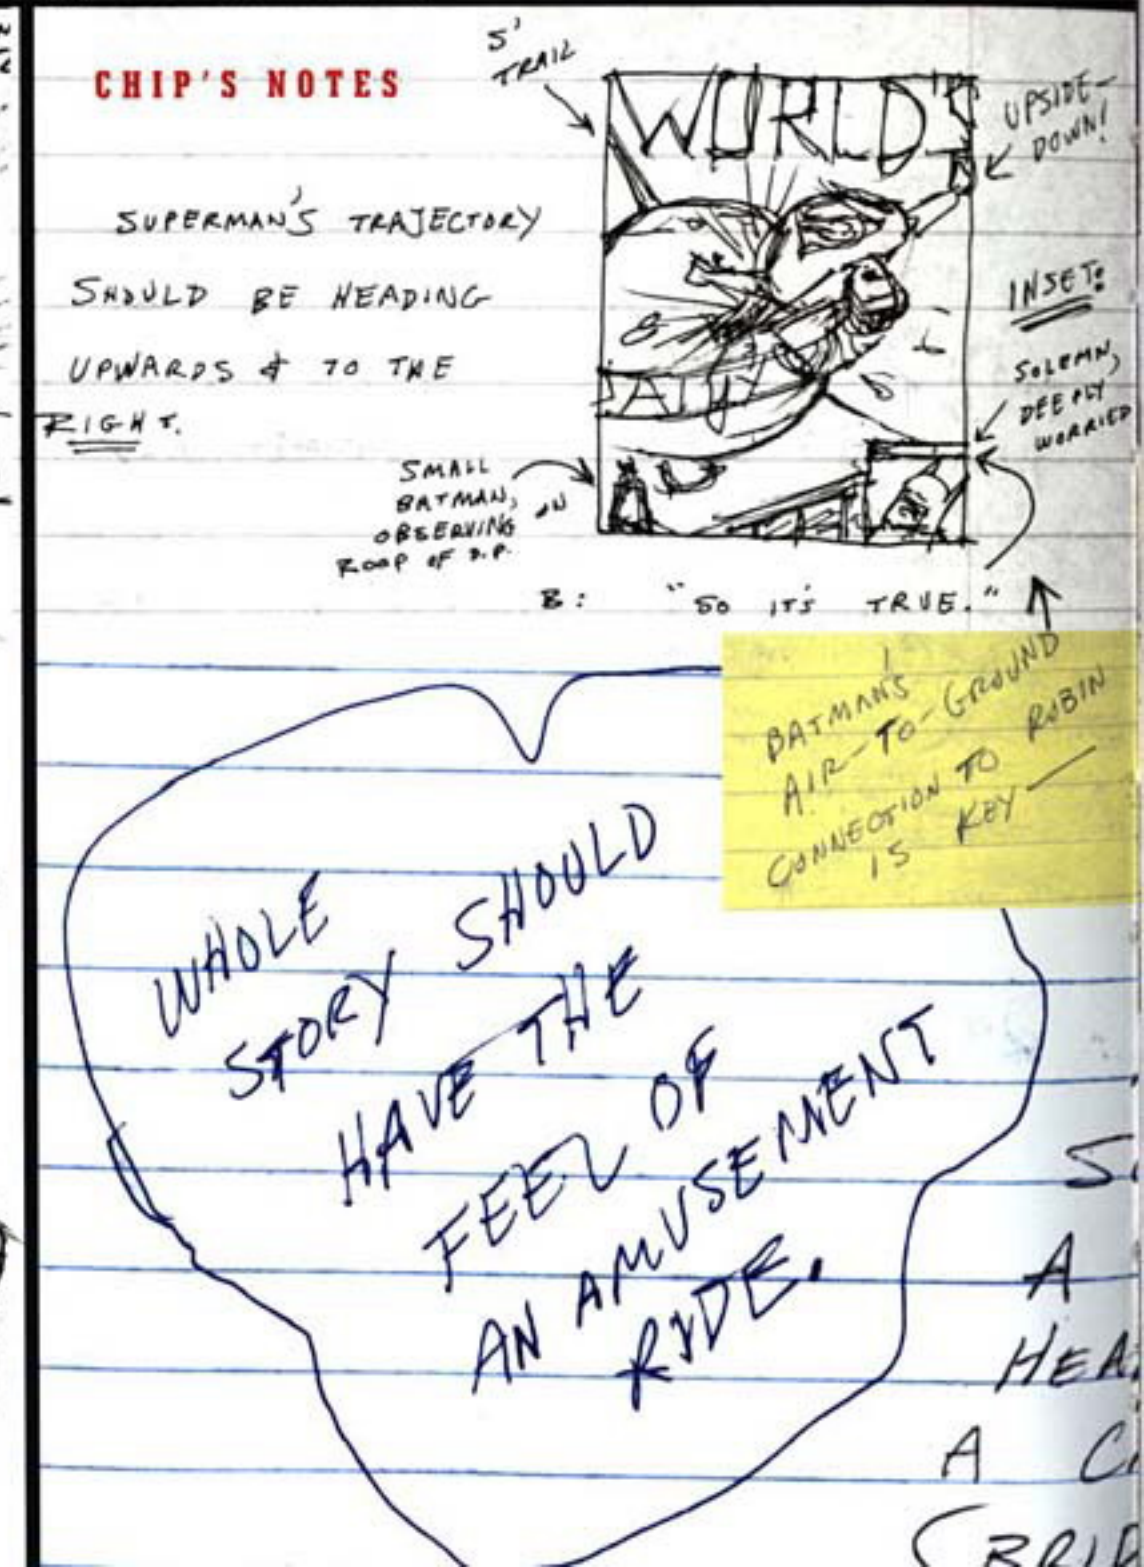 CHIP'S NOTES
S'
TRAIL
WORLD'S
UPSIDE-
DOWN!
SUPERMAN'S TRAJECTORY
SHOULD BE HEADING
UPWARDS & TO THE
RIGHT.
INSET:
SOLEMN,
DEEPLY
WORRIED
SMALL
BATMAN, ON
OBSERVING
ROOF OF D.P.
B: "SO IT'S TRUE."
BATMAN'S
AIR-TO-GROUND
CONNECTION TO ROBIN
IS KEY—
WHOLE
STORY SHOULD
HAVE THE
FEEL OF
AN AMUSEMENT
RIDE.
A
A